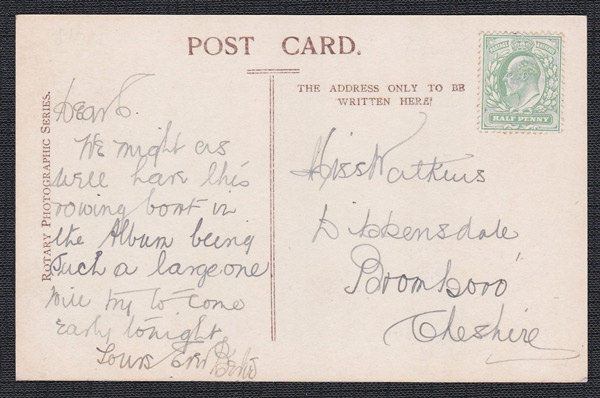 POST CARD.
THE ADDRESS ONLY TO BE
WRITTEN HERE!
ROTARY PHOTOGRAPHIC SERIES.
POSTAGE REVENUE
HALF PENNY
Dear
We might as
well have this
rowing boat in
the Album being
such a large one
will try to come
early tonight
Yours Ever
Miss Watkins
Dibbensdale
Bromboro'
Cheshire